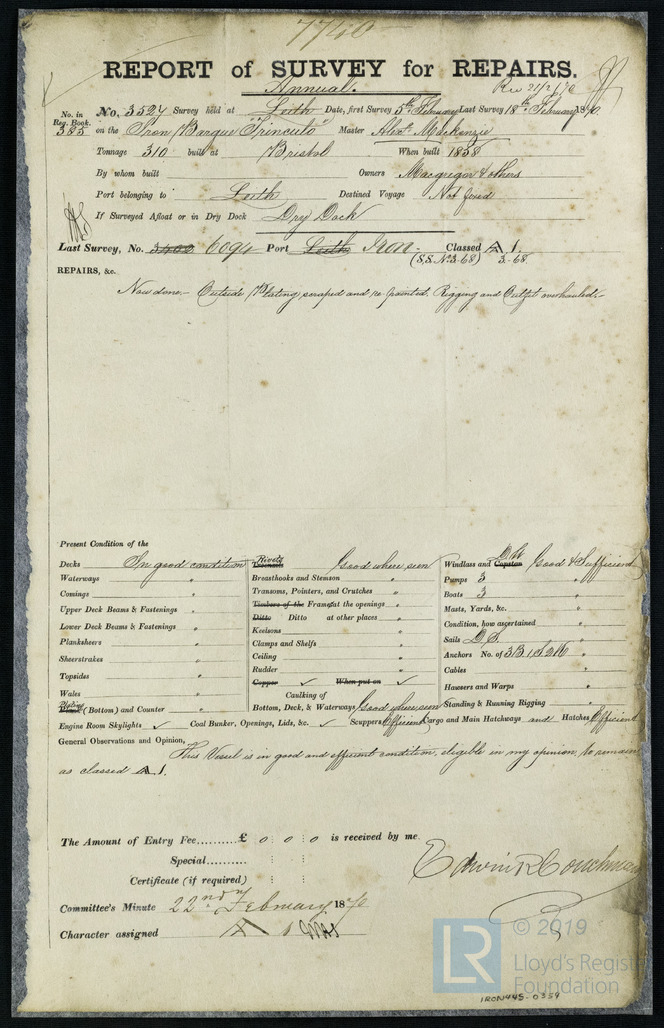 7740
REPORT of SURVEY for REPAIRS.
Annual. Rec 21/2/70
No. in Reg. Book. 385
No. 3527 Survey held at Leith Date, first Survey 5th February Last Survey 18th February 1870.
on the Iron Barque "Trinculo" Master Alexr. Mackenzie
Tonnage 310 built at Bristol When built 1858
By whom built Owners Macgregor & others
Port belonging to Leith Destined Voyage Not fixed
If Surveyed Afloat or in Dry Dock Dry Dock
Last Survey, No. 6094 Port Leith Iron Classed A 1.
(S.S. No. 3-68) 3-68.
REPAIRS, &c.
Now done.- Outside Plating scraped and re-painted. Rigging and Outfit overhauled.-
Present Condition of the
Decks In good condition
Waterways "
Comings "
Upper Deck Beams & Fastenings "
Lower Deck Beams & Fastenings "
Planksheers "
Sheerstrakes "
Topsides "
Wales "
Plating (Bottom) and Counter "
Rivets Good where seen
Breasthooks and Stemson "
Transoms, Pointers, and Crutches "
Timbers of the Frame at the openings "
Ditto Ditto at other places "
Keelsons "
Clamps and Shelfs "
Ceiling "
Rudder "
Copper ✓ When put on ✓
Caulking of
Bottom, Deck, & Waterways Good where seen
Windlass and Capstan Good & Sufficient
Pumps 3 "
Boats 3 "
Masts, Yards, &c. "
Condition, how ascertained "
Sails "
Anchors No. of 3B 1S 2K "
Cables "
Hawsers and Warps "
Standing & Running Rigging "
Engine Room Skylights ✓ Coal Bunker, Openings, Lids, &c. ✓ Scuppers Efficient Cargo and Main Hatchways and Hatches Efficient
General Observations and Opinion,
This Vessel is in good and efficient condition, eligible in my opinion, to remain
as classed A 1.
The Amount of Entry Fee.......... £ 0 : 0 : 0 is received by me
Special.......... : :
Certificate (if required) : :
Edwin R Couchman
Committee's Minute 22nd February 1870
Character assigned A 1
LR © 2019
Lloyd's Register
Foundation
IRON445-0359